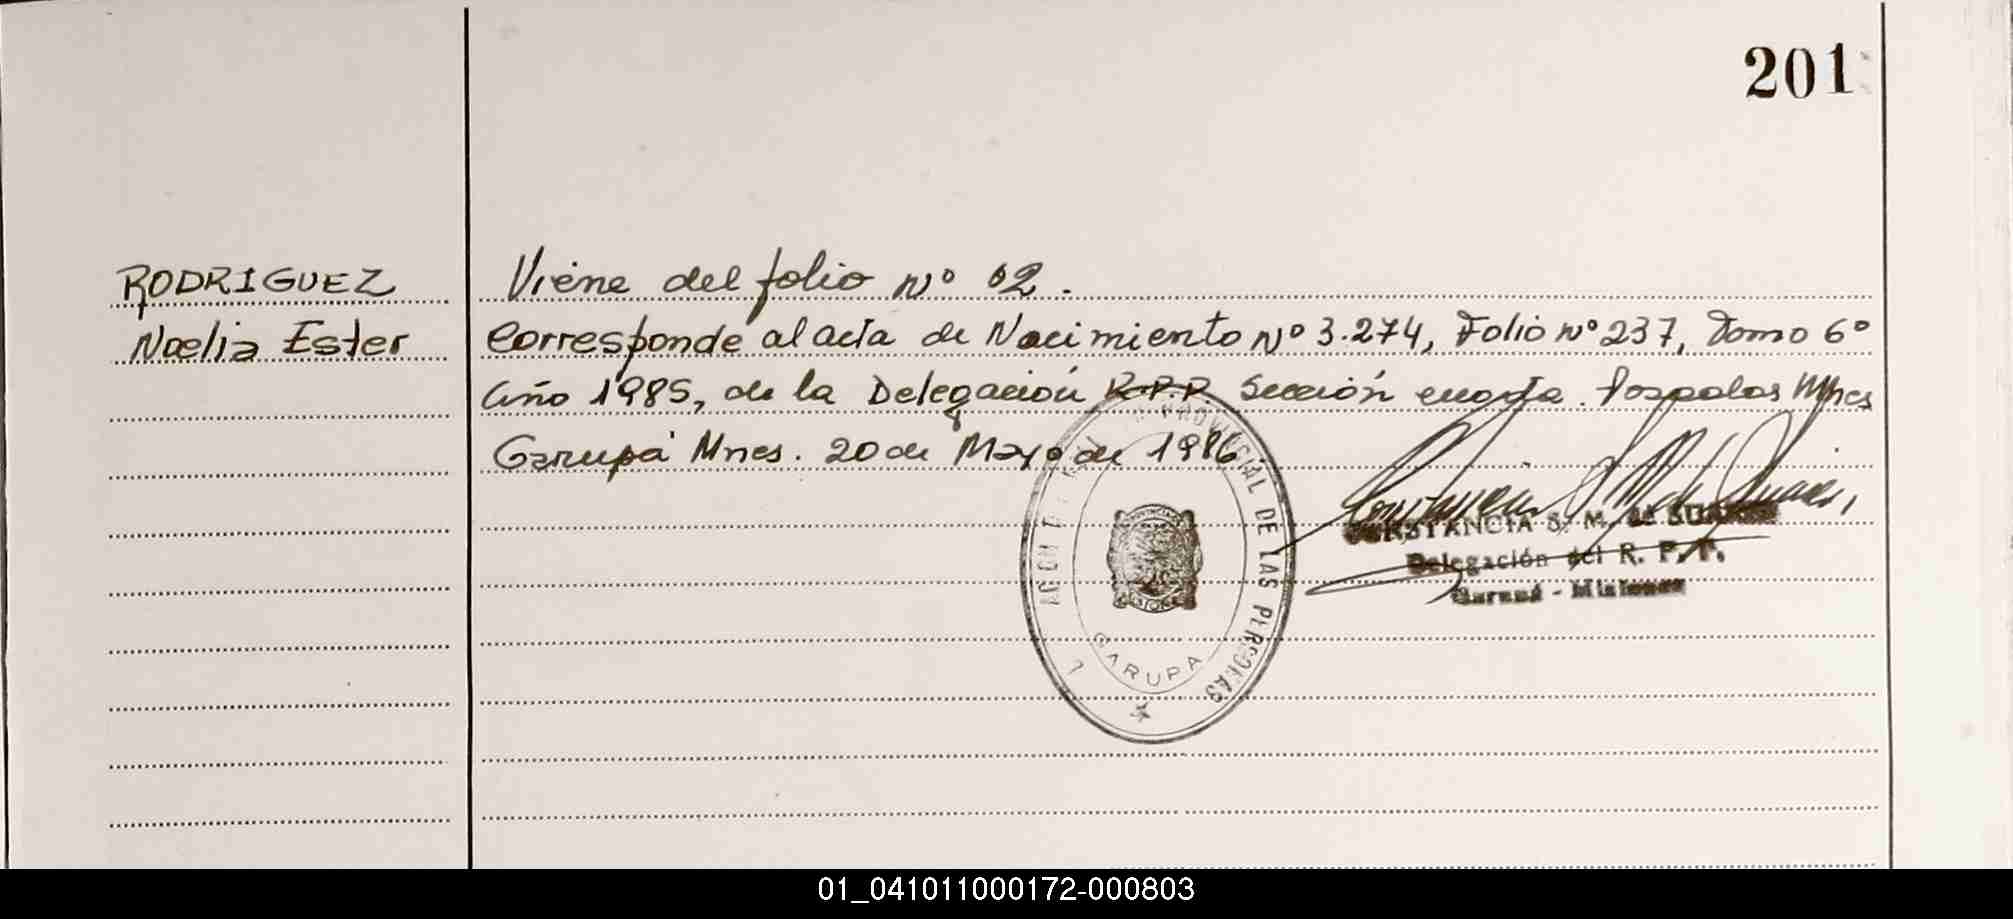 201
RODRIGUEZ
Noelia Ester
Viene del folio Nº 02.
Corresponde al acta de Nacimiento Nº 3.274, Folio Nº 237, Tomo 6º
Año 1985, de la Delegación R.P.P. Sección cuarta. Posadas Mnes
Garupá Mnes. 20 de Mayo de 1986
PROVINCIAL DE LAS PERSONAS
GARUPA
CONSTANCIA S. M. de SUAREZ
Delegación del R. P. P.
Garupá - Misiones
01_041011000172-000803